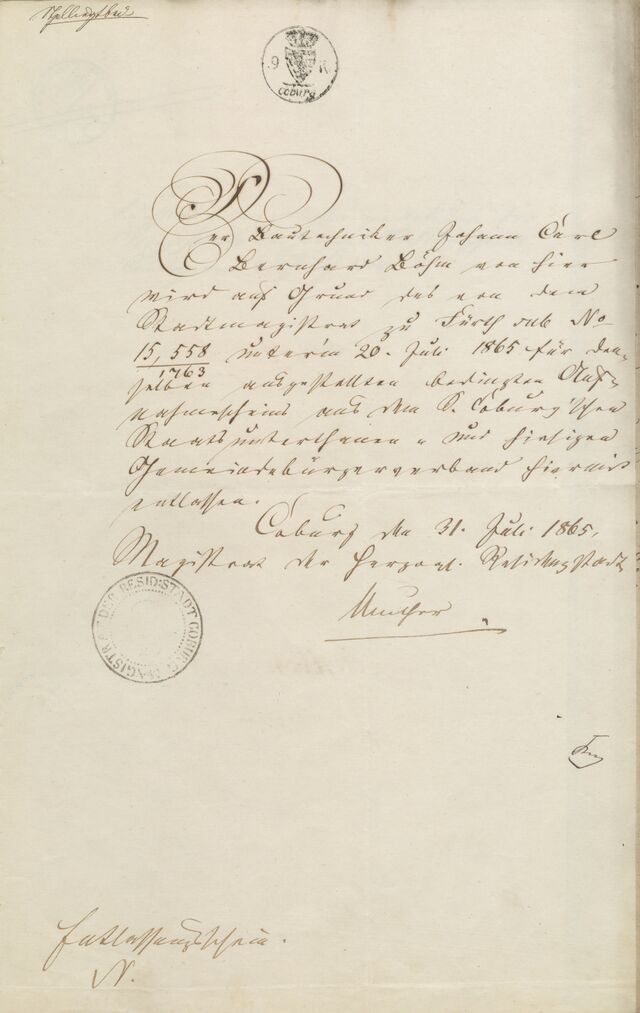 9 K
Coburg
Der Bautechniker Johann Carl
Bernhard Böhm von hier
wird auf Grund des von dem
Stadtmagistrat zu Fürth sub No
15,558
1763
unterm 20. Juli 1865 für den-
selben ausgestellten bedingten Auf-
nahmescheins aus dem S. Coburg'schen
Staatsunterthanen- und hiesigen
Gemeindebürgerverband hiermit
entlassen.
Coburg den 31. Juli 1865.
Magistrat der Herzogl. Residenzstadt
Muther
MAGISTRAT DER RESID: STADT COBURG
Entlassungsschein.